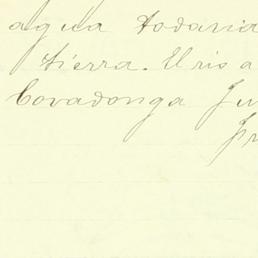 agua todavia
tierra. El ris a
Covadonga Ju